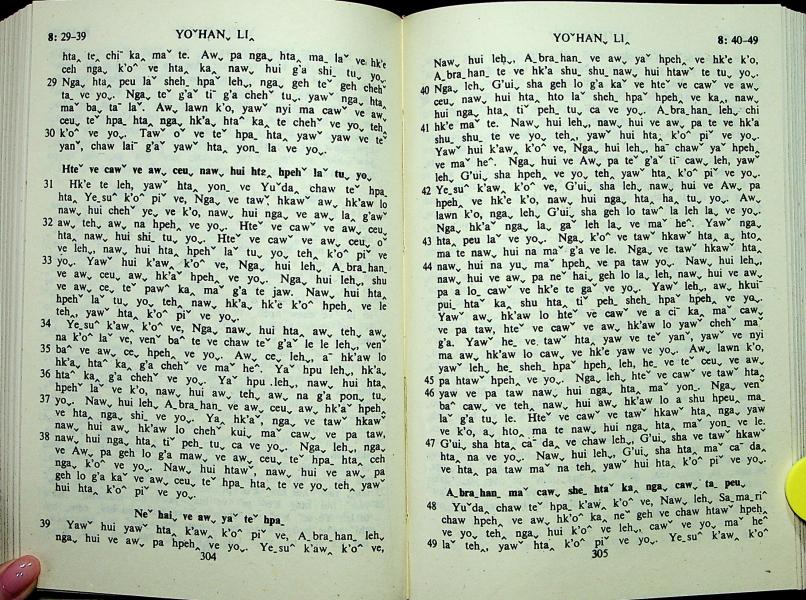 8: 29-39
YOˇHAN˯ LI‸
hta‸ te‸ chiˉ ka‸ maˇ te. Aw˯ pa nga˯ hta‸ ma_ laˇ ve hk'e
ceh nga‸ k'oˆ ve hta‸ ka‸ naw˯ hui g'a shi_ tu˯ yo˯.
29 Nga˯ hta‸ peu laˇ sheh_ hpaˇ leh˯, nga˯ geh teˇ geh chehˇ
ta˯ ve yo˯. Nga˯ teˇ g'aˇ tiˉ g'a chehˇ tu˯, yawˇ nga˯ hta‸
maˇ ba˯ ta˯ laˇ. Aw˯ lawn k'o, yawˇ nyi ma cawˇ ve aw˯
ceu˯ teˇ hpa_ hta‸ nga˯ hk'a˯ htaˆ ka‸ te chehˇ ve yo˯ teh‸
30 k'oˆ ve yo˯. Tawˇ oˇ ve teˇ hpa_ hta‸ yawˇ yaw ve teˇ
yanˇ, chaw laiˉ g'aˇ yawˇ hta‸ yon_ la ve yo˯.
Hteˇ ve cawˇ ve aw˯ ceu˯ naw˯ hui hta‸ hpehˇ laˇ tu˯ yo˯
31 Hk'e te leh˯ yawˇ hta‸ yon_ ve Yuˇda˯ chaw teˇ hpa_
hta‸ Ye˯suˆ k'oˆ piˇ ve, Nga˯ ve tawˇ hkawˇ aw˯ hk'aw lo
naw˯ hui chehˇ ye˯ ve k'o, naw˯ hui nga˯ hui ve aw˯ la˯ g'awˇ
32 aw˯ teh˯ aw˯ na hpeh˯ ve yo˯. Hteˇ ve cawˇ ve aw˯ ceu˯
hta‸ naw˯ hui shi_ tu˯ yo˯. Hteˇ ve cawˇ ve aw˯ ceu˯ oˇ
ve leh˯, naw˯ hui hta‸ hpehˇ laˇ tu˯ yo˯ teh‸ k'oˆ piˇ ve
33 yo˯. Yawˇ hui k'aw‸ k'oˆ ve, Nga˯ hui leh˯ A_bra_han_
ve aw˯ ceu˯ aw˯ hk'aˇ hpeh˯ ve yo˯. Nga˯ hui leh˯ shu
ve aw˯ ce˯ teˇ pawˇ ka‸ maˇ g'a te jaw. Naw˯ hui hta‸
hpehˇ laˇ tu˯ yo˯ teh‸ naw˯ hk'a˯ hk'e k'oˆ hpeh˯ ve le
teh‸ yawˇ hta‸ k'oˆ piˇ ve yo˯.
34 Ye˯suˆ k'aw‸ k'oˆ ve, Nga˯ naw˯ hui hta‸ aw˯ teh˯ aw˯
na k'oˆ laˇ ve, venˇ baˆ te ve chaw teˇ g'aˇ le le leh˯ venˇ
35 baˆ ve aw˯ ce˯ hpeh˯ ve yo˯. Aw˯ ce˯ leh˯ aˉ hk'aw lo
hk'a˯ htaˆ ka‸ g'a chehˇ ve maˇ heˆ. Yaˇ hpu leh˯ hk'a˯
36 htaˆ ka‸ g'a chehˇ ve yo˯. Yaˇ hpu leh˯ naw˯ hui hta‸
hpehˇ laˇ ve k'o, naw˯ hui aw˯ teh˯ aw˯ na g'a pon_ tu˯
37 yo˯. Naw˯ hui leh˯ A_bra_han_ ve aw˯ ceu˯ aw˯ hk'aˇ hpeh˯
ve hta‸ nga˯ shi_ ve yo˯. Ya˯ hk'aˇ, nga˯ ve tawˇ hkawˇ
naw˯ hui aw˯ hk'aw lo chehˇ kui˯ maˇ caw˯ ve pa taw˯
38 naw˯ hui nga˯ hta‸ tiˇ peh_ tu˯ ca ve yo˯. Nga˯ leh˯ nga˯
ve Aw˯ pa geh lo g'a maw˯ ve aw˯ ceu˯ teˇ hpa_ hta‸ ceh
nga˯ k'oˆ ve yo˯. Naw˯ hui htawˇ naw˯ hui ve aw˯ pa
geh lo g'a kaˇ ve aw˯ ceu˯ teˇ hpa_ hta‸ te ve yo˯ teh‸ yawˇ
hui hta‸ k'oˆ piˇ ve yo˯.
Neˇ hai˯ ve aw˯ yaˇ teˇ hpa_
39 Yawˇ hui yawˇ hta‸ k'aw‸ k'oˆ piˇ ve, A_bra_han_ leh˯
nga˯ hui ve aw˯ pa hpeh˯ ve yo˯. Ye˯suˆ k'aw‸ k'oˆ ve,
304
YOˇHAN˯ LI‸
8: 40-49
Naw˯ hui leh˯ A_bra_han_ ve aw˯ yaˇ hpeh˯ ve hk'e k'o,
A_bra_han_ te ve hk'a shu_ shu_ naw˯ hui htawˇ te tu˯ yo˯.
40 Nga˯ leh˯ G'ui˯ sha geh lo g'a kaˇ ve hteˇ ve cawˇ ve aw˯
ceu˯ naw˯ hui hta‸ hto laˇ sheh_ hpaˇ hpeh˯ ve ka‸ naw˯
hui nga˯ hta‸ tiˇ peh_ tu˯ ca ve yo˯. A_bra_han_ leh˯ chi
41 hk'e maˇ te. Naw˯ hui leh˯ naw˯ hui ve aw˯ pa te ve hk'a
shu_ shu_ te ve yo˯ teh‸ yawˇ hui hta‸ k'oˆ piˇ ve yo˯.
Yawˇ hui k'awˆ k'oˆ ve, Nga˯ hui leh˯ haˉ chawˇ yaˇ hpeh˯
ve maˇ heˆ. Nga˯ hui ve Aw˯ pa teˇ g'aˇ tiˉ caw˯ leh˯ yawˇ
leh˯ G'ui˯ sha hpeh˯ ve yo˯ teh‸ yawˇ hta‸ k'oˆ piˇ ve yo˯.
42 Ye˯suˆ k'aw‸ k'oˆ ve, G'ui˯ sha leh˯ naw˯ hui ve Aw˯ pa
hpeh˯ ve hk'e k'o, naw˯ hui nga˯ hta‸ ha˯ tu˯ yo˯. Aw˯
lawn k'o, nga˯ leh˯ G'ui˯ sha geh lo tawˆ la leh la˯ ve yo˯.
Nga˯ hk'aˇ nga˯ la˯ gaˇ leh la˯ ve maˇ heˆ. Yawˇ nga˯
43 hta‸ peu laˇ ve yo˯. Nga˯ k'oˆ ve tawˇ hkawˇ hta‸ a_ hto‸
ma te naw˯ hui na maˇ g'a ve le. Nga˯ ve tawˇ hkawˇ hta‸
44 naw˯ hui na yu˯ maˇ hpeh˯ ve pa taw yo˯. Naw˯ hui leh˯
naw˯ hui ve aw˯ pa neˇ hai˯ geh lo la leh˯ naw˯ hui ve aw˯
pa a lo_ cawˇ ve hk'e te gaˇ ve yo˯. Yawˇ leh˯ aw˯ hkuiˉ
pui_ htaˇ ka‸ shu hta‸ tiˇ peh_ sheh_ hpaˇ hpeh˯ ve yo˯.
Yawˇ aw˯ hk'aw lo hteˇ ve cawˇ ve a ciˉ ka‸ maˇ caw˯
ve pa taw˯ hteˇ ve cawˇ ve aw˯ hk'aw lo yawˇ chehˇ maˇ
g'a. Yawˇ he˯ ve tawˇ hta‸ yaw ve teˇ yanˇ, yawˇ ve nyi
ma aw˯ hk'aw lo caw˯ ve hk'e yaw ve yo˯. Aw˯ lawn k'o,
yawˇ leh˯ he_ sheh_ hpaˇ hpeh˯ leh˯ he_ ve teˇ ceu˯ ve aw˯
45 pa htawˇ hpeh˯ ve yo˯. Nga˯ leh˯ hteˇ ve cawˇ ve taw˯ hta‸
46 yaw ve pa taw naw˯ hui nga˯ hta‸ maˇ yon_. Nga˯ venˇ
baˆ caw˯ ve teh‸ naw˯ hui aw˯ hk'aw lo a shu hpeu ma_
laˇ g'a tu˯ le. Hteˇ ve cawˇ ve tawˇ hkawˇ hta‸ nga˯ yaw
ve k'o, a_ hto‸ ma te naw˯ hui nga˯ hta‸ maˇ yon_ ve le.
47 G'ui˯ sha hta‸ caˆ da˯ ve chaw leh˯ G'ui˯ sha ve tawˇ hkawˇ
hta‸ na ve yo˯. Naw˯ hui leh˯ G'ui˯ sha hta‸ maˇ caˆ da˯
ve hta‸ pa taw maˇ na teh‸ yawˇ hui hta‸ k'oˆ piˇ ve yo˯.
A_bra_han_ maˇ caw˯ she_ htaˇ ka‸ nga˯ caw˯ ta_ peu˯
48 Yuˇda˯ chaw teˇ hpa_ k'aw‸ k'oˆ ve, Naw˯ leh˯ Sa_ma_riˆ
chaw hpeh˯ ve aw˯ hk'oˆ ka‸ neˇ geh ve chaw htawˇ hpeh˯
ve yo˯ teh‸ nga˯ hui k'oˆ ve leh˯ cawˇ ve yo˯ maˇ heˆ
49 laˇ teh‸ yawˇ hta‸ k'oˆ piˇ ve yo˯. Ye˯suˆ k'aw‸ k'oˆ
305